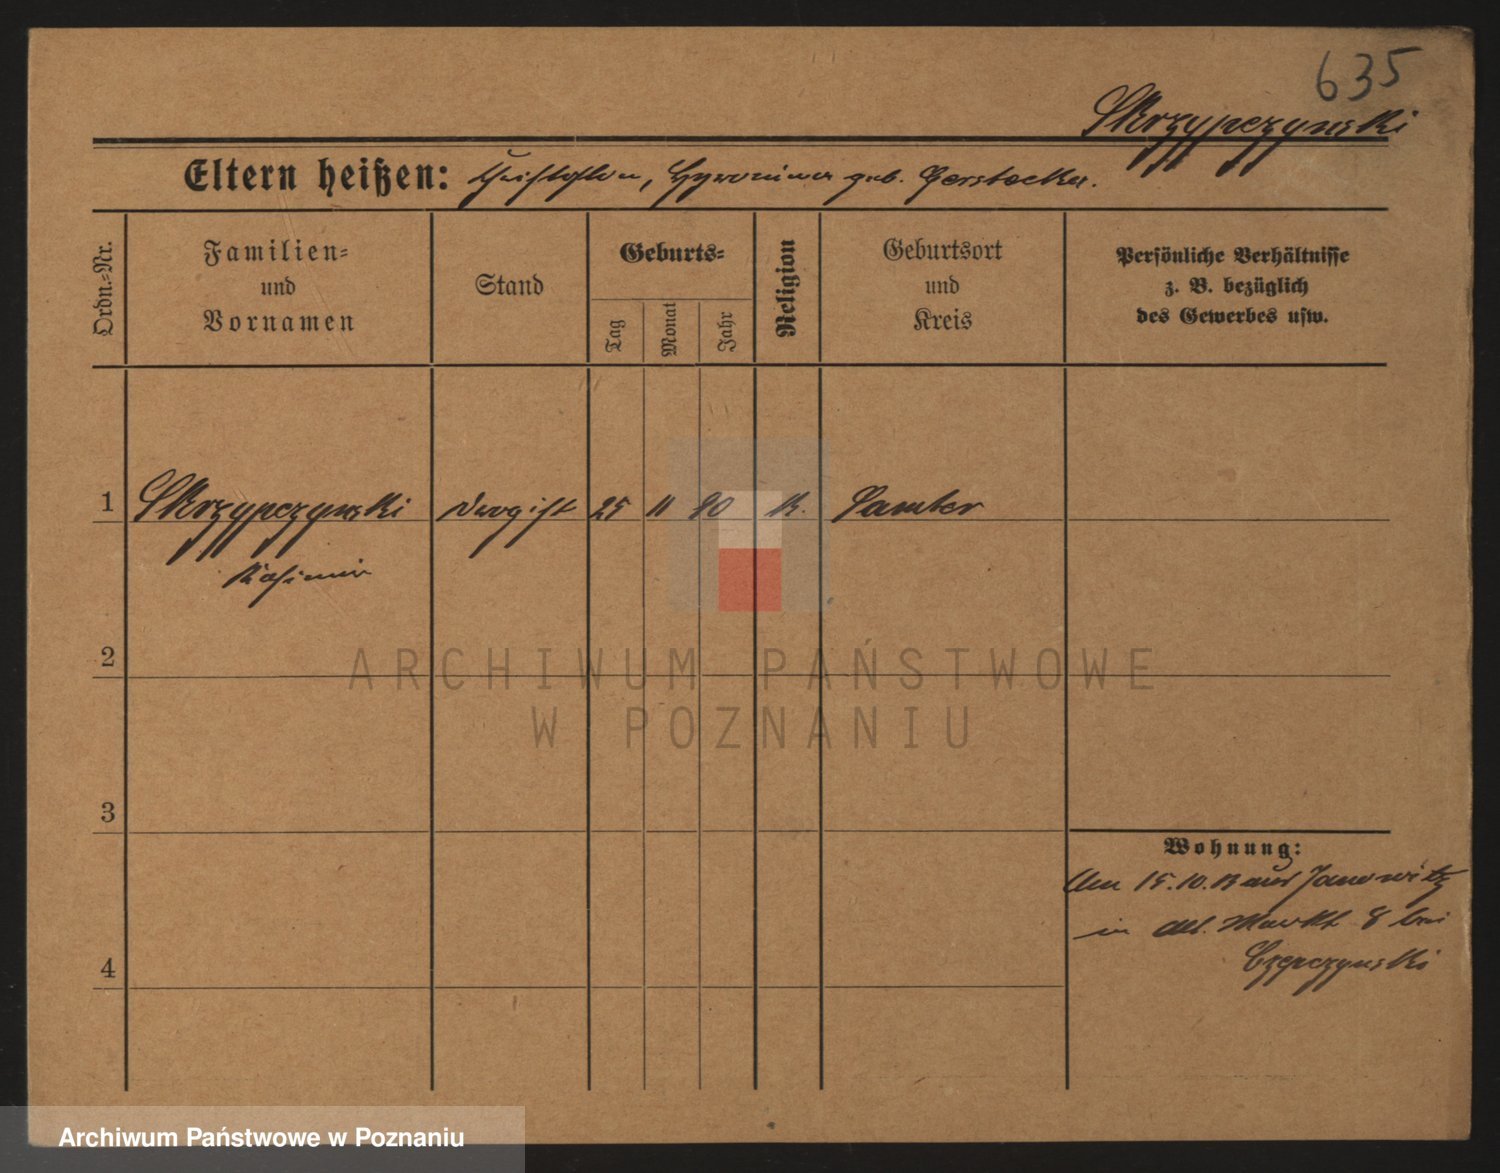 635
Skrzypczynski
Eltern heißen: geb. Gerstocka.
Ordn.-Nr.
Familien-
und
Vornamen
Stand
Geburts-
Tag
Monat
Jahr
Religion
Geburtsort
und
Kreis
Persönliche Verhältnisse
z. B. bezüglich
des Gewerbes usw.
1 Skrzypczynski Drogist 25 11 90 K. Samter
Kasimir
2
ARCHIWUM PAŃSTWOWE
W POZNANIU
3
Wohnung:
Am 15.10.13 aus Janowitz
in Markt 8 bei
Czepczynski
4
Archiwum Państwowe w Poznaniu